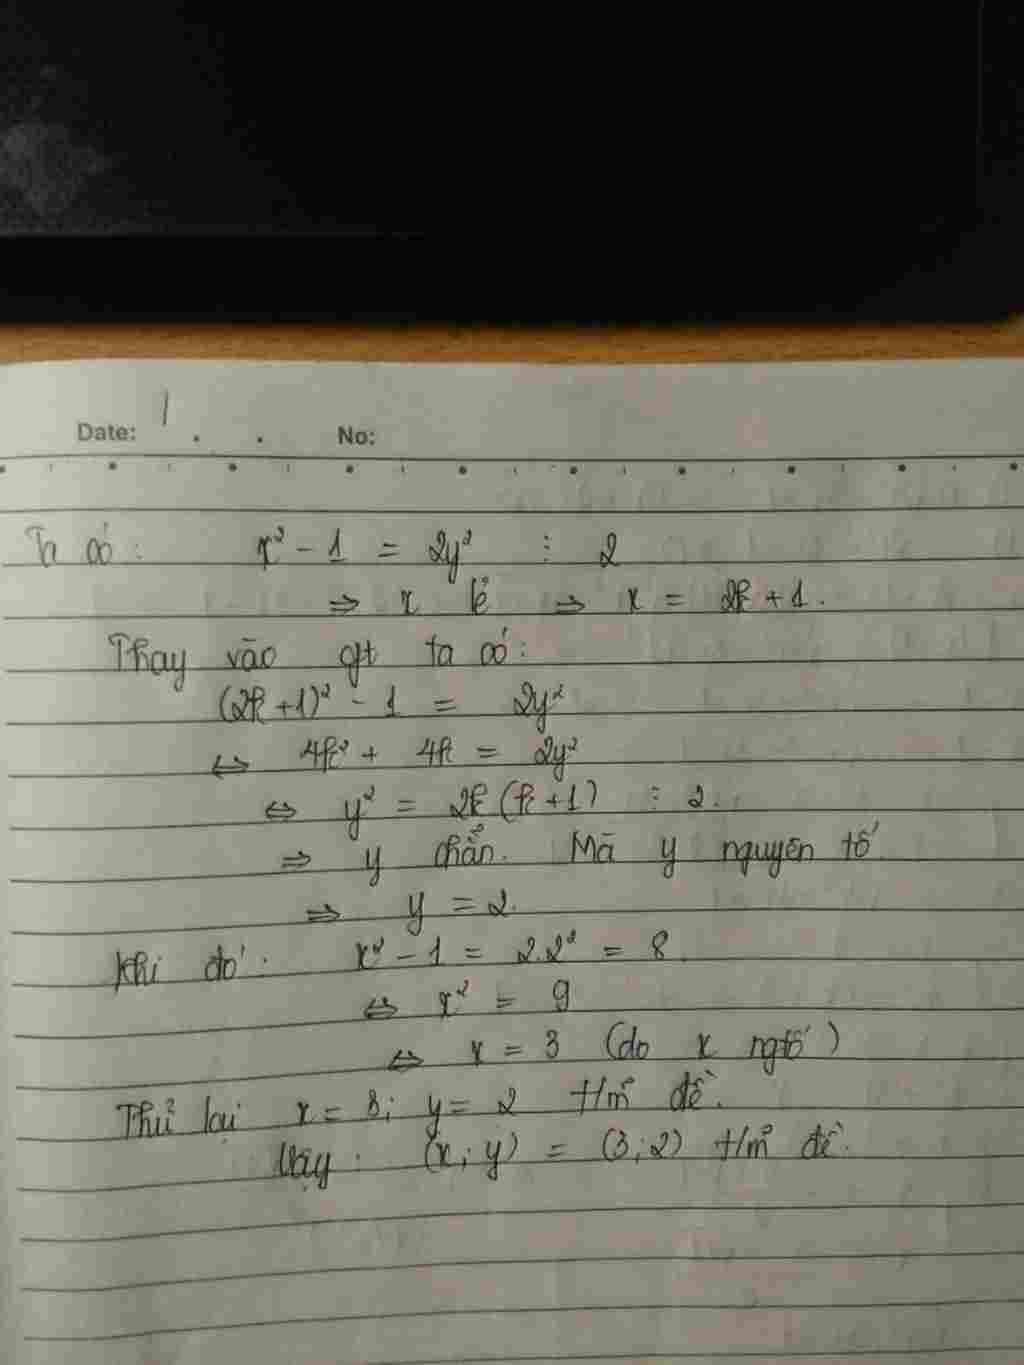 1
Date: . . No:
Ta có: x² - 1 = 2y² ⋮ 2
⇒ x lẻ ⇒ x = 2k + 1.
Thay vào gt ta có:
(2k + 1)² - 1 = 2y²
⇔ 4k² + 4k = 2y²
⇔ y² = 2k (k + 1) ⋮ 2.
⇒ y chẵn. Mà y nguyên tố
⇒ y = 2.
Khi đó: x² - 1 = 2.2² = 8.
⇔ x² = 9
⇔ x = 3 (do x ngtố)
Thử lại x = 3; y = 2 t/m đề.
Vậy: (x; y) = (3; 2) t/m đề.